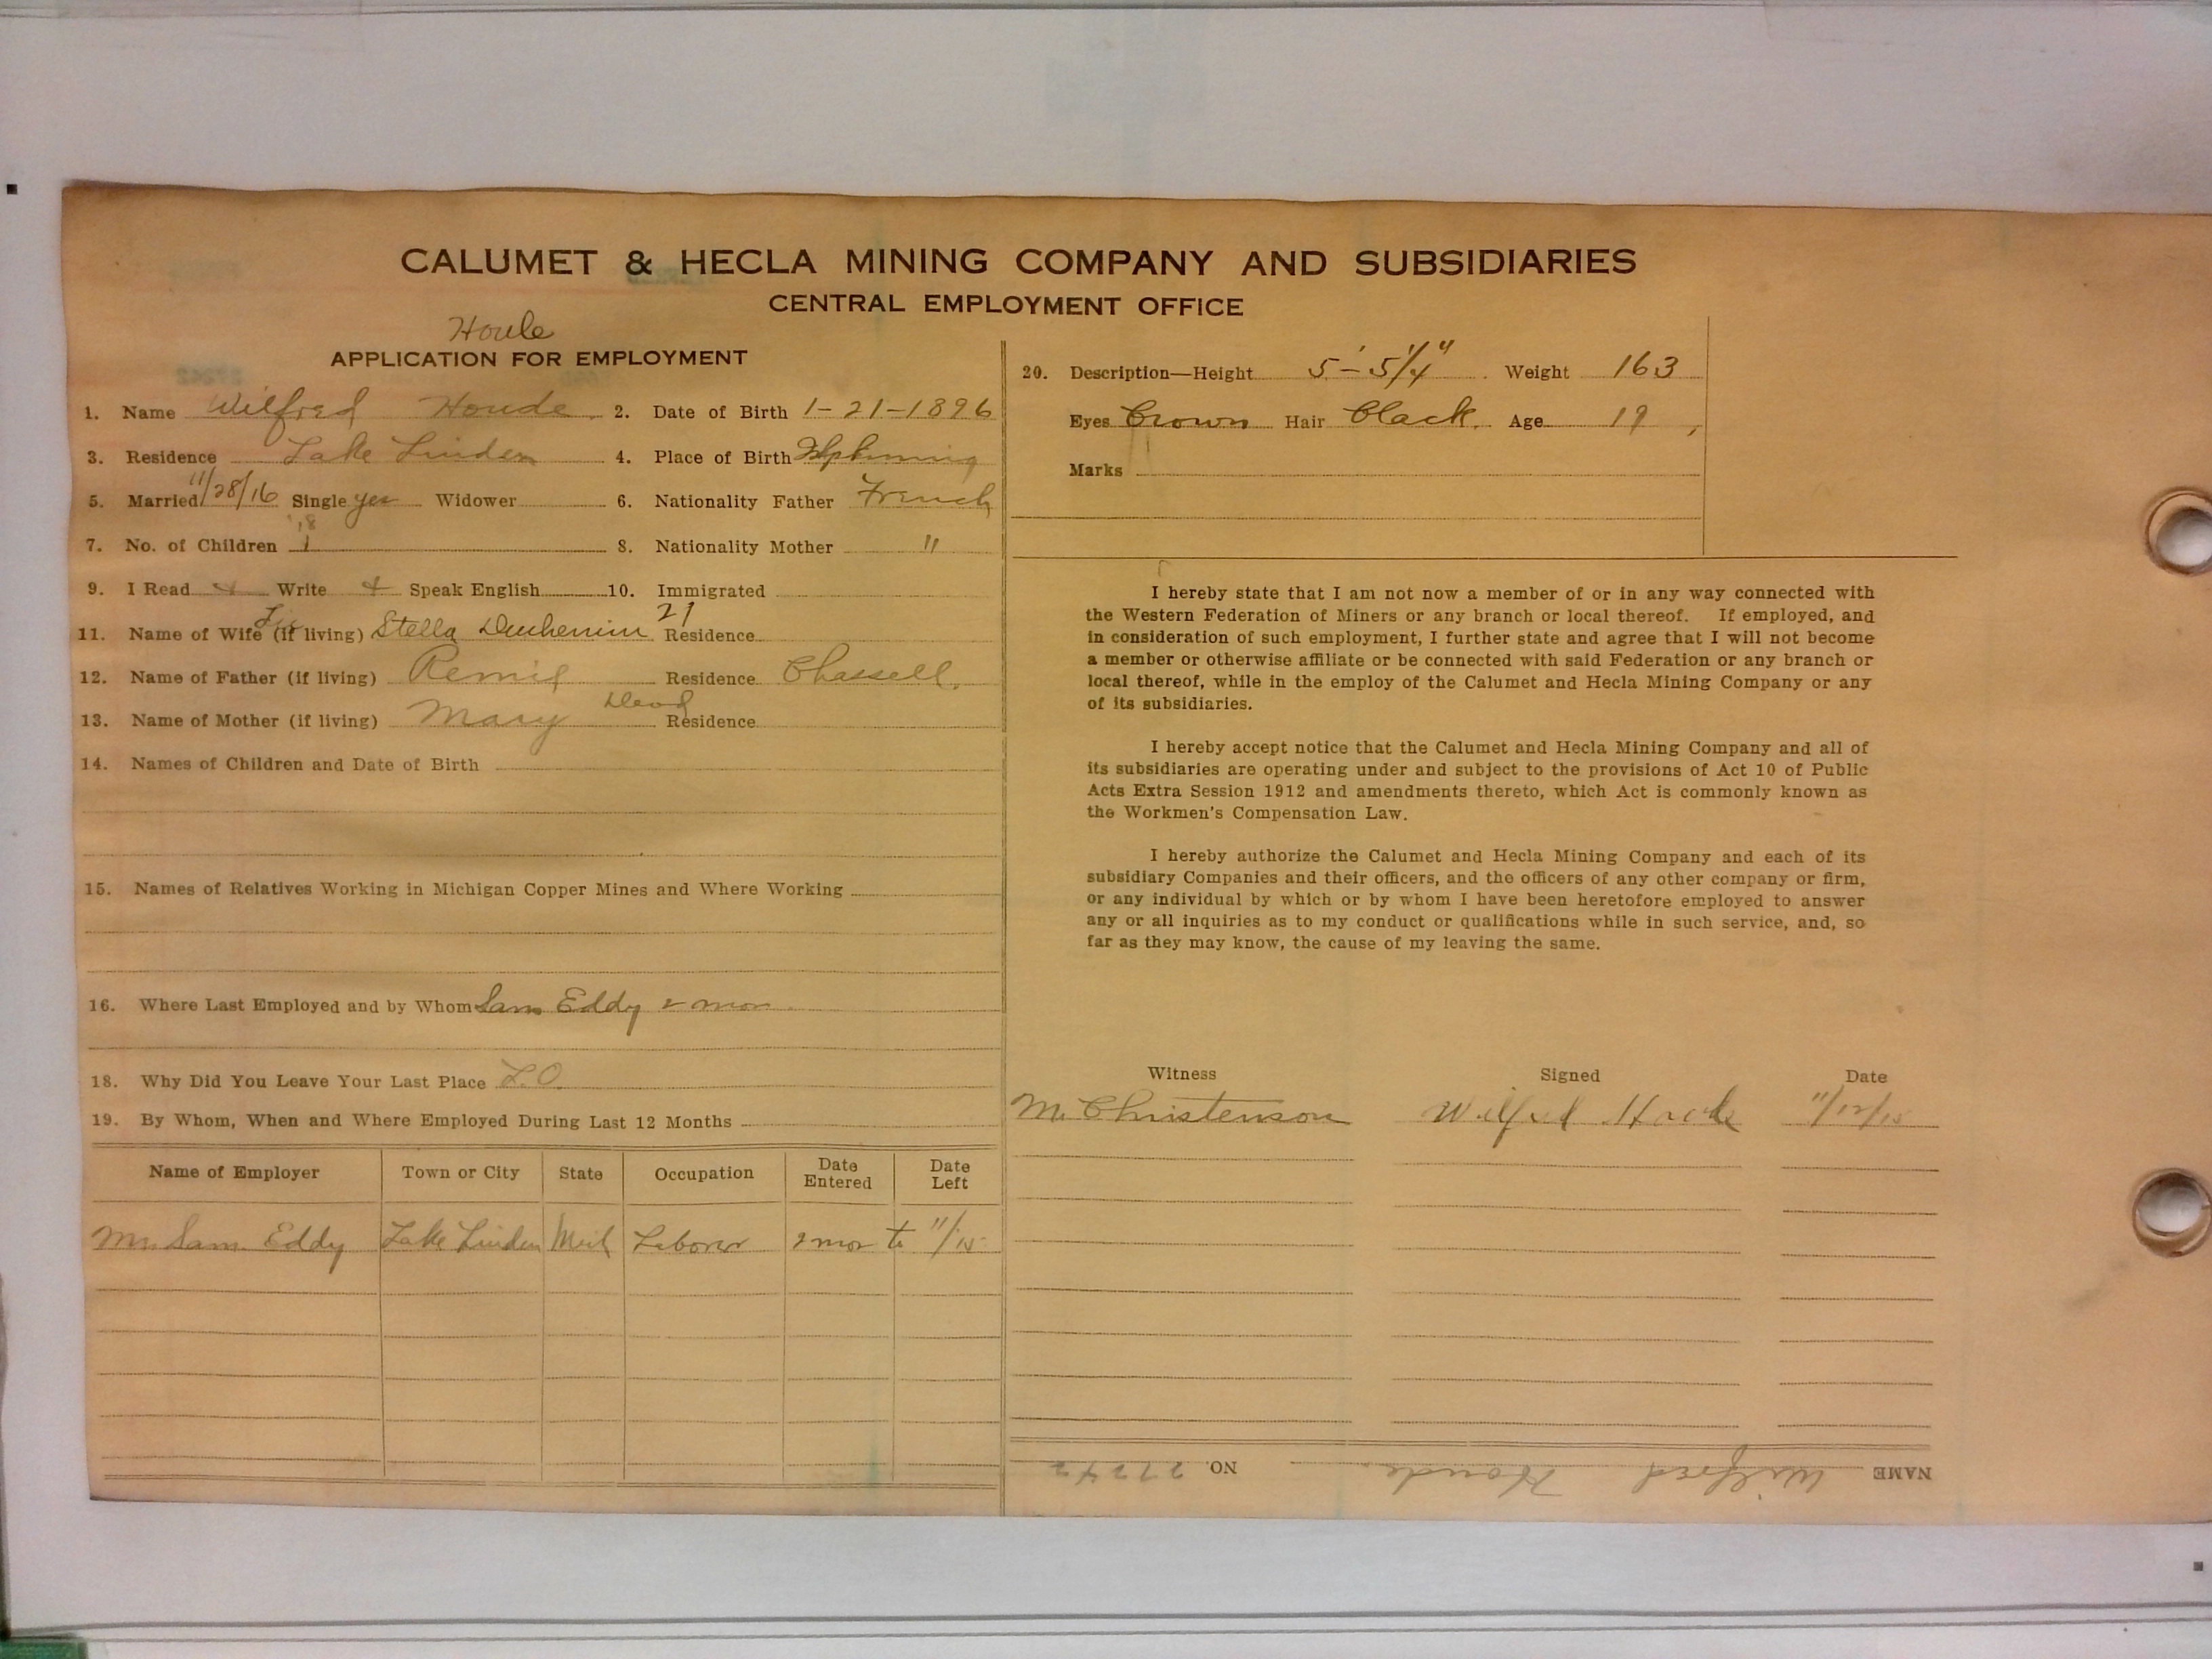 CALUMET & HECLA MINING COMPANY AND SUBSIDIARIES
CENTRAL EMPLOYMENT OFFICE
Houle
APPLICATION FOR EMPLOYMENT
1. Name Wilfred Houde. 2. Date of Birth 1-21-1896
3. Residence Lake Linden 4. Place of Birth
5. Married 11/28/16 Single yes Widower 6. Nationality Father French
'18
7. No. of Children 1 8. Nationality Mother "
9. I Read Write Speak English 10. Immigrated
21
11. Name of Wife (if living) Stella Residence
12. Name of Father (if living) Residence Chassell.
13. Name of Mother (if living) Mary Dead Residence
14. Names of Children and Date of Birth
15. Names of Relatives Working in Michigan Copper Mines and Where Working
16. Where Last Employed and by Whom Sam Eddy 2 mon
18. Why Did You Leave Your Last Place L.O.
19. By Whom, When and Where Employed During Last 12 Months
Name of Employer Town or City State Occupation Date Entered Date Left
Mr. Sam. Eddy Lake Linden Mich Laborer 2 mon to 11/15
20. Description—Height 5'-5 1/4" Weight 163
Eyes Brown Hair Black. Age 19
Marks
I hereby state that I am not now a member of or in any way connected with
the Western Federation of Miners or any branch or local thereof. If employed, and
in consideration of such employment, I further state and agree that I will not become
a member or otherwise affiliate or be connected with said Federation or any branch or
local thereof, while in the employ of the Calumet and Hecla Mining Company or any
of its subsidiaries.
I hereby accept notice that the Calumet and Hecla Mining Company and all of
its subsidiaries are operating under and subject to the provisions of Act 10 of Public
Acts Extra Session 1912 and amendments thereto, which Act is commonly known as
the Workmen's Compensation Law.
I hereby authorize the Calumet and Hecla Mining Company and each of its
subsidiary Companies and their officers, and the officers of any other company or firm,
or any individual by which or by whom I have been heretofore employed to answer
any or all inquiries as to my conduct or qualifications while in such service, and, so
far as they may know, the cause of my leaving the same.
Witness Signed Date
M. Christenson Wilfred 11/12/15
NAME Wilfred Houde. NO. 27242